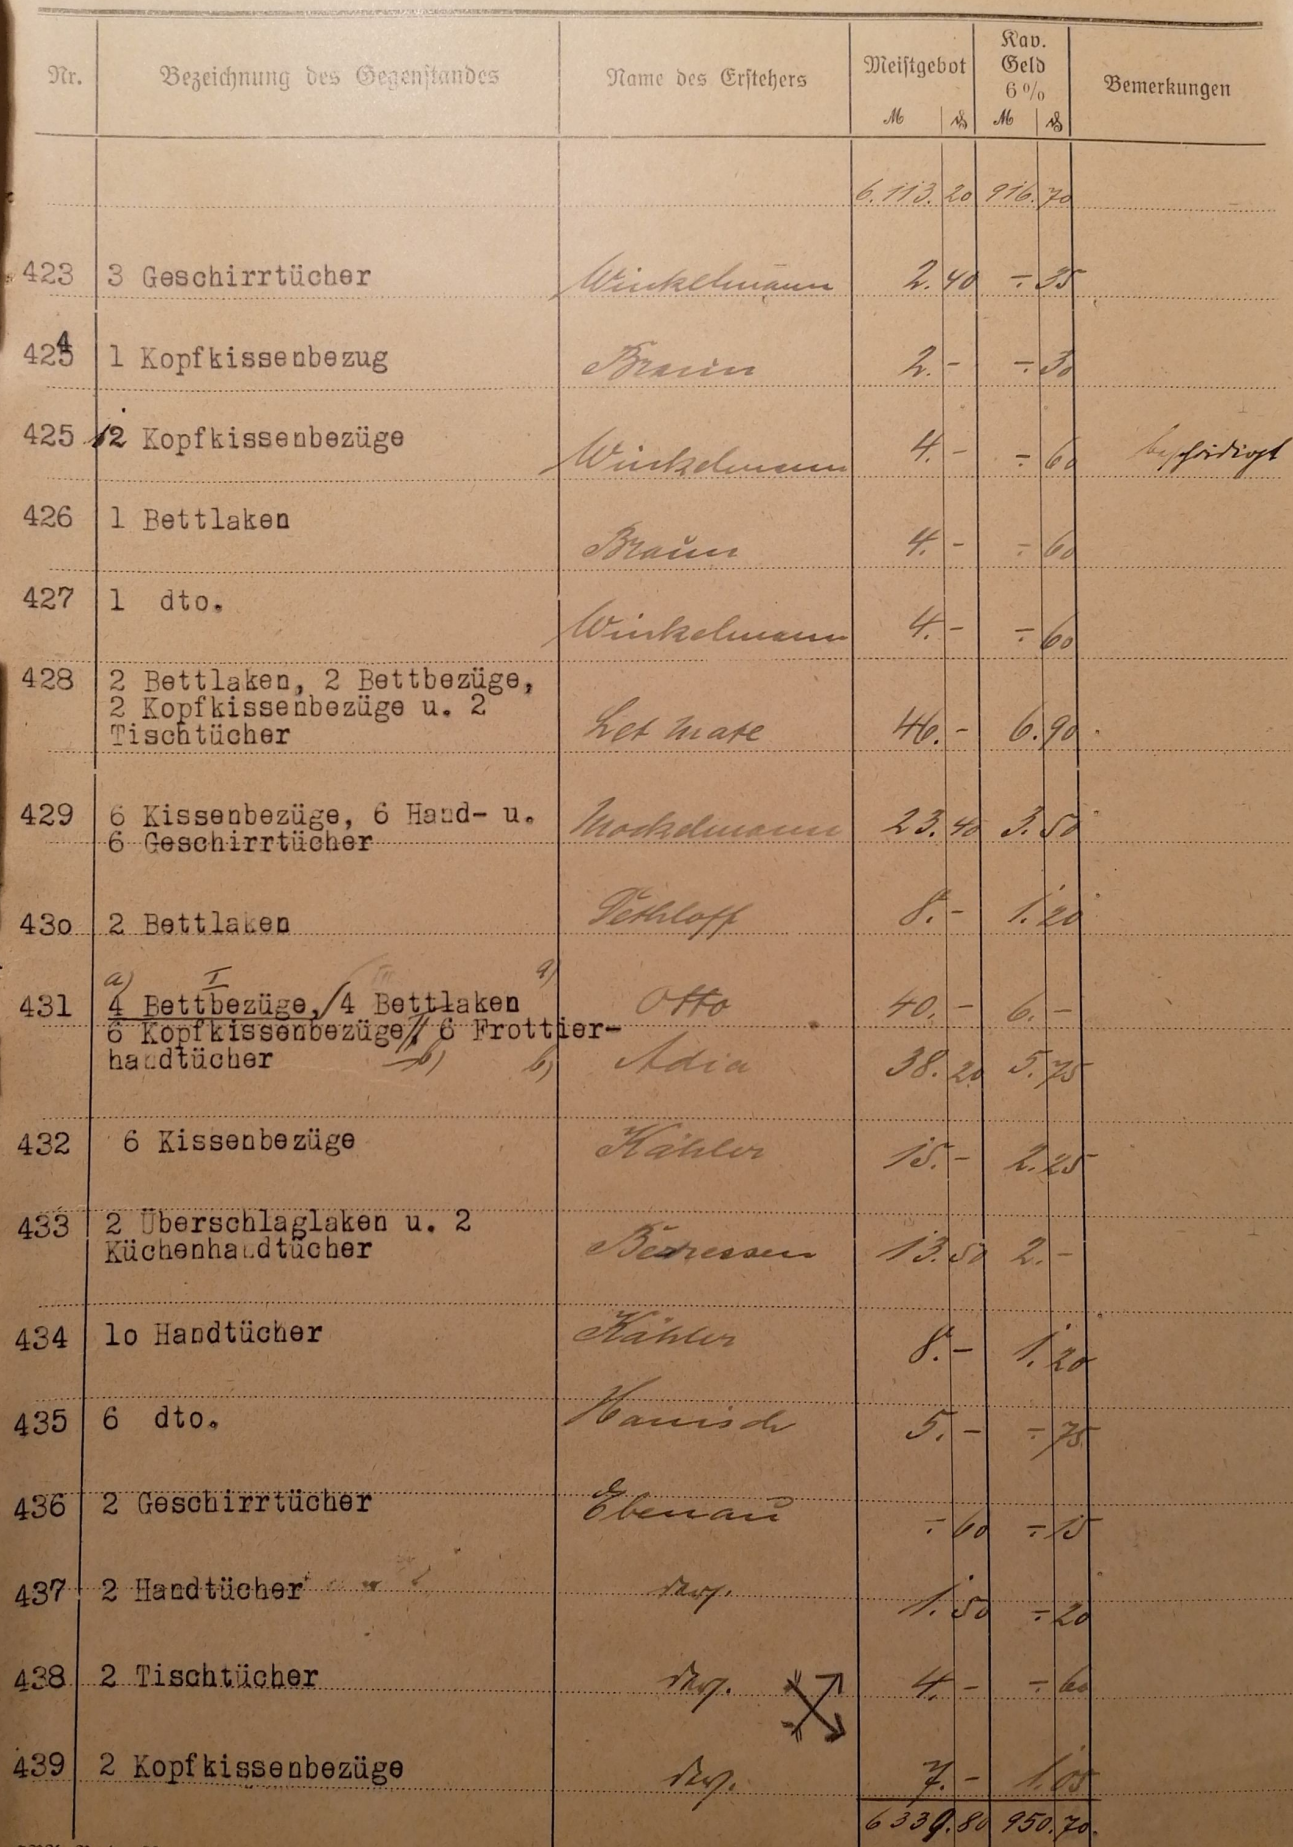 Nr. Bezeichnung des Gegenstandes Name des Erstehers Meistgebot Kav. Geld 6% Bemerkungen
M ₰ M ₰
6.113.20 916.70
423 3 Geschirrtücher Winkelmann 2.40 -.35
424 1 Kopfkissenbezug Braun 2.- -.30
425 2 Kopfkissenbezüge Winkelmann 4.- -.60 beschädigt
426 1 Bettlaken Braun 4.- -.60
427 1 dto. Winkelmann 4.- -.60
428 2 Bettlaken, 2 Bettbezüge,
2 Kopfkissenbezüge u. 2
Tischtücher Letmate 46.- 6.90
429 6 Kissenbezüge, 6 Hand- u. Mockelmann 23.40 3.50
6 Geschirrtücher
43o 2 Bettlaken Dethloff 8.- 1.20
a) I a)
431 4 Bettbezüge, 4 Bettlaken Otto 40.- 6.-
6 Kopfkissenbezüge, 6 Frottier-
handtücher b) b) Adia 38.20 5.75
432 6 Kissenbezüge Kähler 15.- 2.25
433 2 Überschlaglaken u. 2
Küchenhandtücher Berressen 13.50 2.-
434 1o Handtücher Kähler 8.- 1.20
435 6 dto. Hanisch 5.- -.75
436 2 Geschirrtücher Ebenau -.60 -.15
437 2 Handtücher ders. 1.50 -.20
438 2 Tischtücher ders. 4.- -.60
439 2 Kopfkissenbezüge ders. 7.- 1.05
6339.80 950.70.